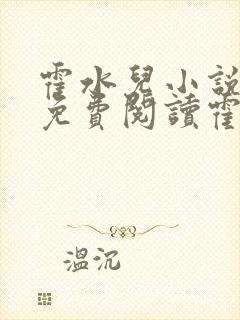 霍水兒小說
免費閱讀霍
溫沉